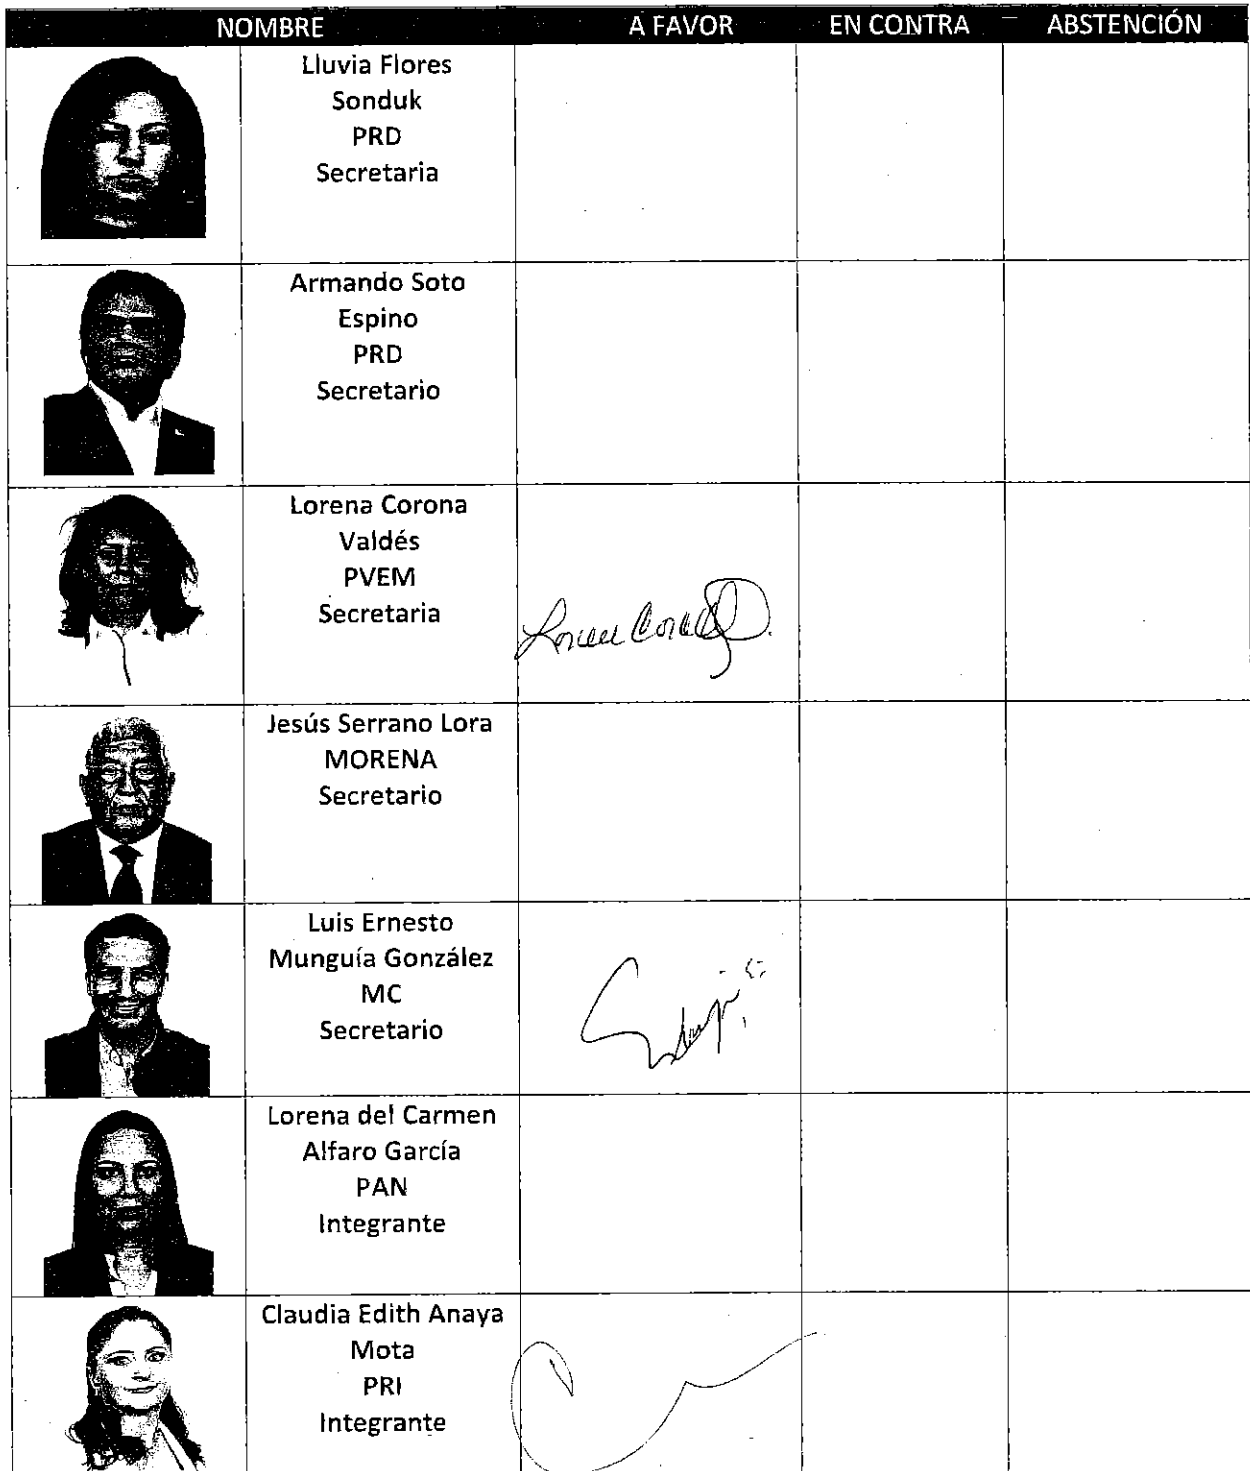 NOMBRE A FAVOR EN CONTRA ABSTENCIÓN
Lluvia Flores
Sonduk
PRD
Secretaria
Armando Soto
Espino
PRD
Secretario
Lorena Corona
Valdés
PVEM
Secretaria
Jesús Serrano Lora
MORENA
Secretario
Luis Ernesto
Munguía González
MC
Secretario
Lorena del Carmen
Alfaro García
PAN
Integrante
Claudia Edith Anaya
Mota
PRI
Integrante